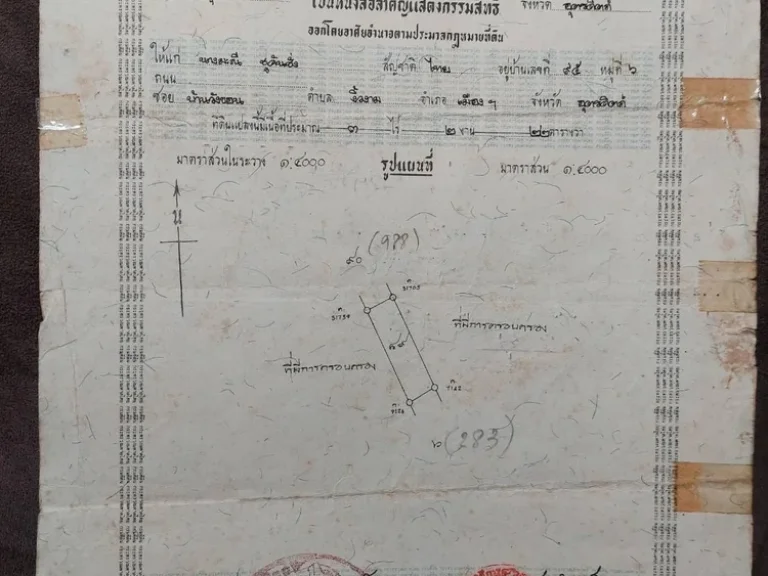 เป็นหนังสือสำคัญแสดงกรรมสิทธิ์ จังหวัด อุตรดิตถ์
ออกโดยอาศัยอำนาจตามประมวลกฎหมายที่ดิน
ให้แก่ สัญชาติ ไทย อยู่บ้านเลขที่ ๙๕ หมู่ที่ ๖
ถนน
ซอย ตำบล งิ้วงาม อำเภอ เมืองฯ จังหวัด อุตรดิตถ์
ที่ดินแปลงนี้มีเนื้อที่ประมาณ ๓ ไร่ ๒ งาน ๒๒ ตารางวา
มาตราส่วนในระวาง ๑:๔๐๐๐ รูปแผนที่ มาตราส่วน ๑:๔๐๐๐
น
๙๐ (988)
ที่มีการครอบครอง
ที่มีการครอบครอง
๖ (283)